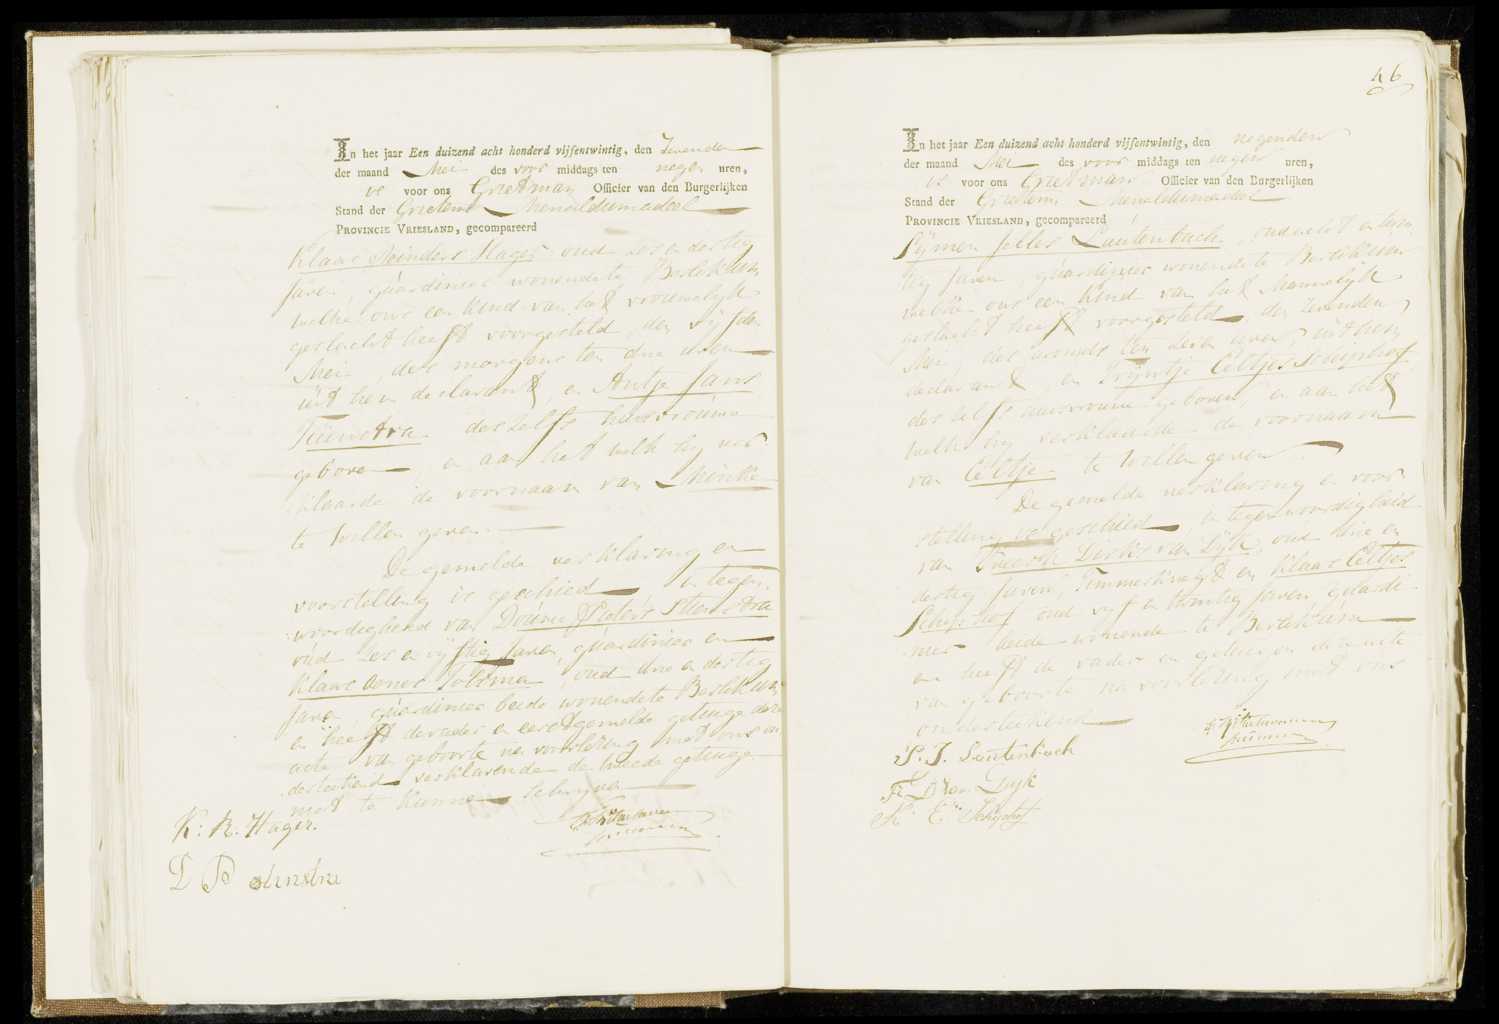 In het jaar Een duizend acht honderd vijfentwintig, den Zevenden
der maand Mei des voor middags ten negen uren,
is voor ons Grietman Officier van den Burgerlijken
Stand der Grietenij Menaldumadeel
PROVINCIE VRIESLAND, gecompareerd
Klaas Reinders Hager oud zes en dertig
Jaren, gúardinier wonende te Berlekum
welke ons een kind van het vrouwelijk
geslacht heeft voorgesteld, den vijfden
Mei des morgens ten drie uren
uit hem declarant, en Antje Jans
Túinstra deszelfs huisvrouw
geboren en aan het welk hij ver
klaarde de voornaam van
te willen geven
De gemelde verklaring en
voorstelling is geschied in tegen
woordigheid van Doúwe Pieters
oúd zes en vijftig Jaren, gúardinier en
Klaas oúd drie en dertig
Jaren gúardinier beide wonende te Berlekum
en heeft de vader en eerstgemelde getuige deze
acte van geboorte na voorlezing met ons on
derteekend verklarende de tweede getuige
niet te kunnen schrijven
K: R. Hager.
D P
46
In het jaar Een duizend acht honderd vijfentwintig, den negenden
der maand Mei des voor middags ten negen uren,
is voor ons Grietman Officier van den Burgerlijken
Stand der Grietenij Menaldumadeel
PROVINCIE VRIESLAND, gecompareerd
Sijmen Jelles Lautenbach, oud acht en twin
tig Jaren, gúardinier wonende te Berlekum
welke ons een kind van het Mannelijk
geslacht heeft voorgesteld, den Zevenden
Mei, des avonds ten uren, uit hem
declarant en Trijntje Eeltjes
deszelfs huisvrouw geboren, en aan het
welk hij verklaarde de voornaam
van Eeltje te willen geven
De gemelde verklaring en voor
stelling is geschied in tegenwoordigheid
van Dirks van Dijk, oúd drie en
dertig Jaren, Timmerknegt en Klaas Eeltjes
Schijshof oud vijf en twintig Jaren gúardi
nier beide wonende te Berlekum
en heeft de vader en getuigen deze acte
van geboorte na voorlezing met ons
onderteekend
S. J. Lautenbach
F D van Dijk
K: E: Schijshof